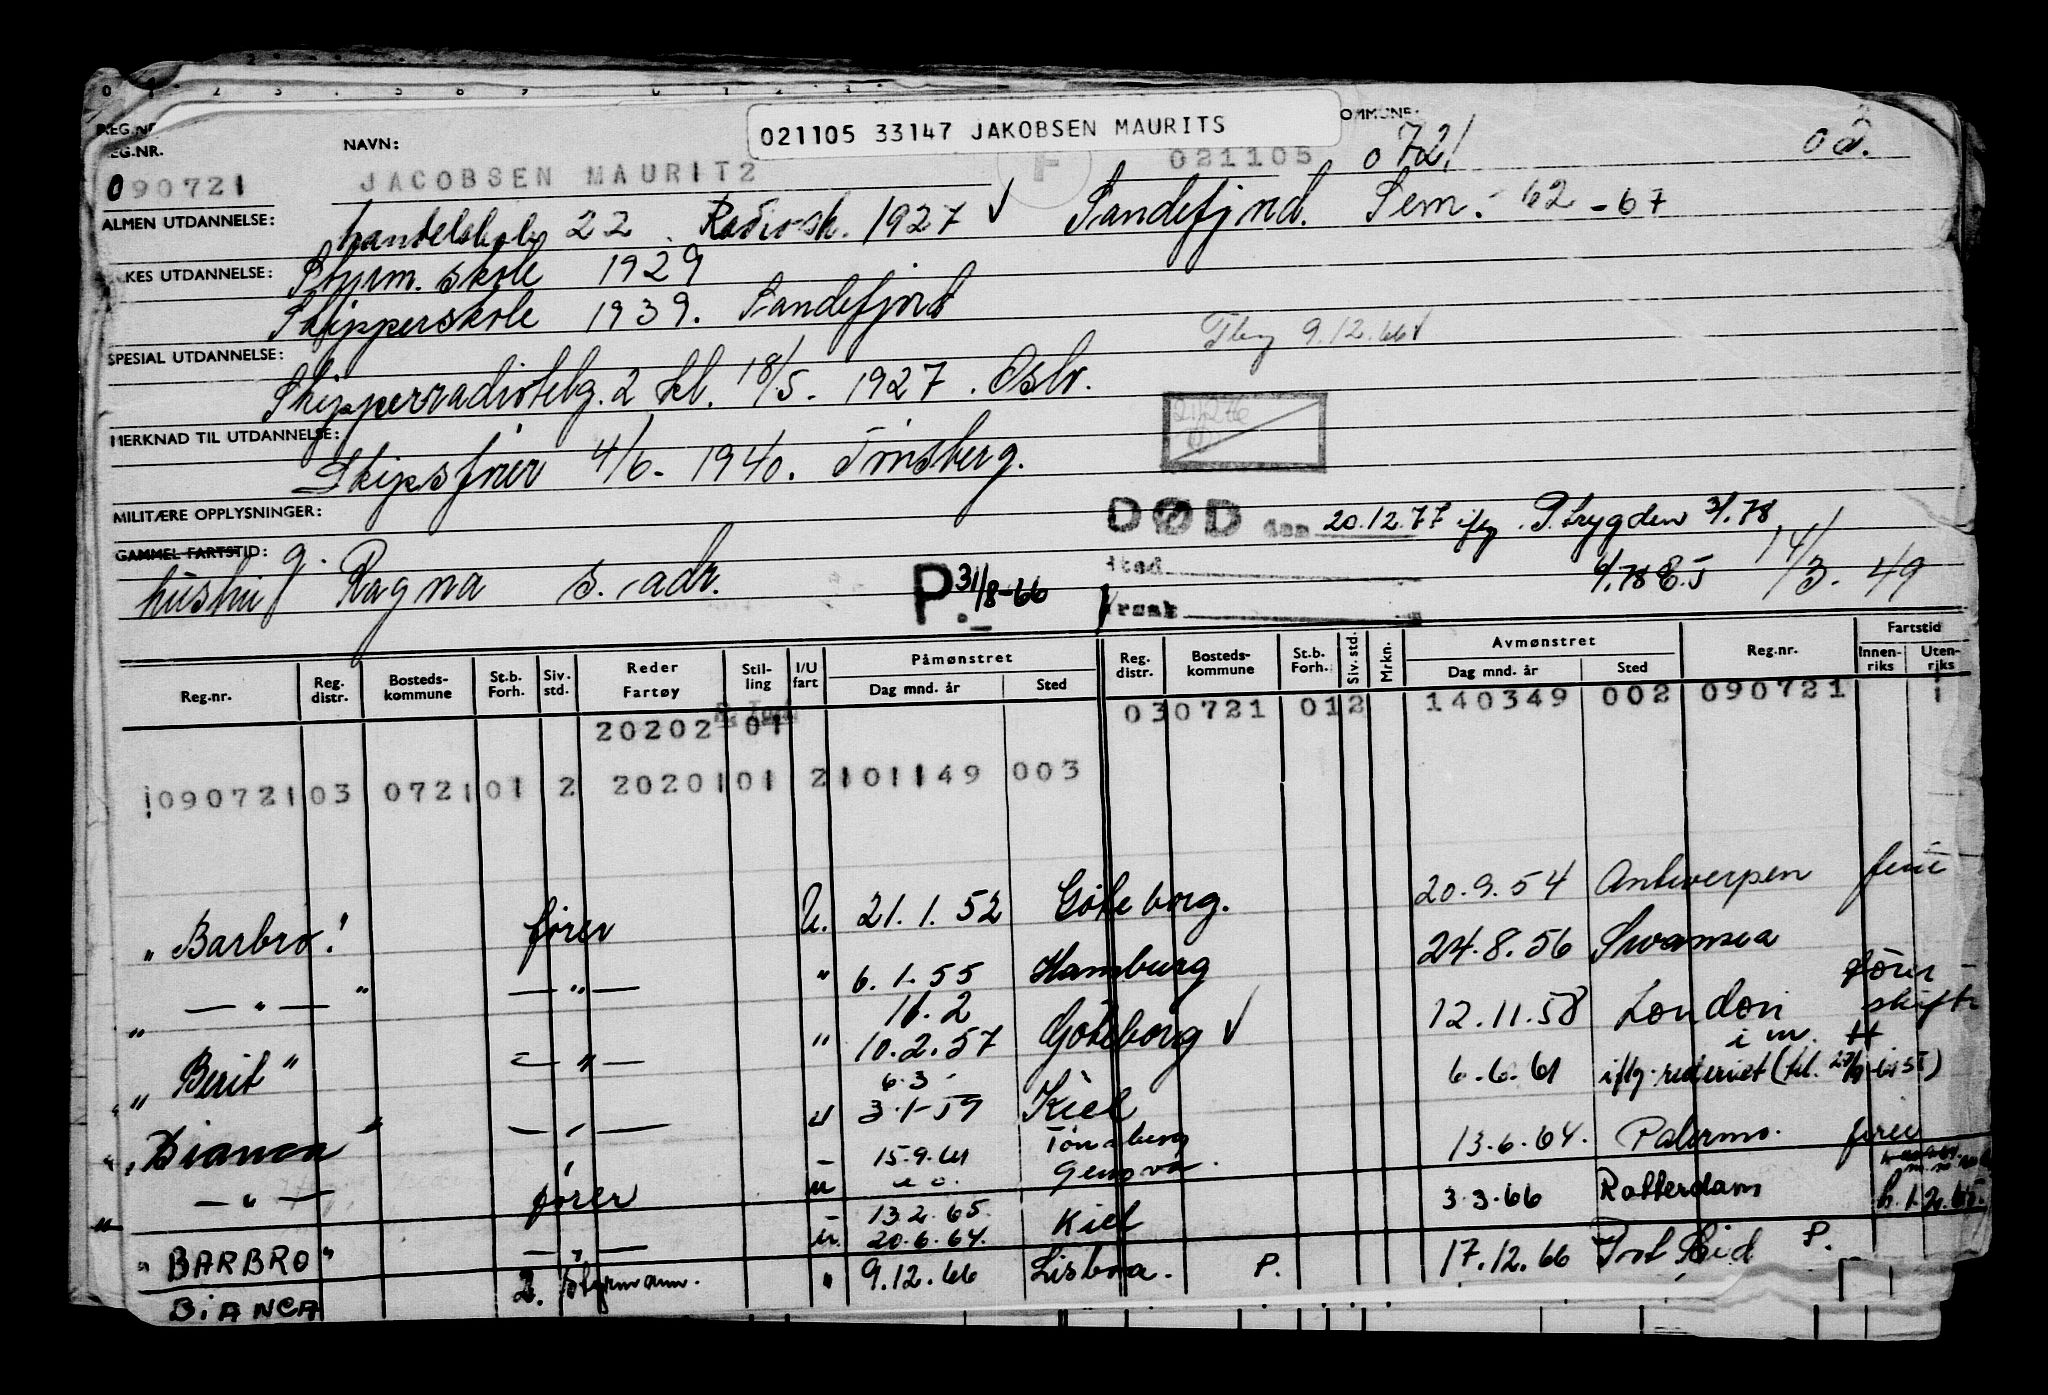 021105 33147 JAKOBSEN MAURITS
REG.NR. NAVN: KOMMUNE:
090721 JACOBSEN MAURITZ F 021105 0721 02.
ALMEN UTDANNELSE: handelskole 22 Radiosk. 1927 Sandefjord. Sem. 62-67
KES UTDANNELSE: Styrm. skole 1929
Skipperskole 1939. Sandefjord
9.12.66
SPESIAL UTDANNELSE:
Skipperradiotelg. 2 kl. 18/5. 1927. Oslo.
MERKNAD TIL UTDANNELSE:
Skipsfører 4/6-1940. Tönsberg.
MILITÆRE OPPLYSNINGER:
DØD den 20.12.77 iflg. P.trygden 3/1.78
GAMMEL FARTSTID: g.
hustru Ragna s. adr. P. 31/8-66 Sted 14/3.49
Årsak
Reg.nr. Reg. distr. Bosteds-kommune St.b. Forh. Siv. std. Reder Fartøy Stil-ling I/U fart Påmønstret Dag mnd. år Sted Reg. distr. Bosteds-kommune St.b. Forh. Siv. std. Mrkn. Avmønstret Dag mnd. år Sted Reg.nr. Fartstid Innen-riks Uten-riks
20202 01 030721 012 140349 002 090721 1
090721 03 0721 01 2 20201 01 2 101149 003
"Barbro" fører U. 21.1.52 Göteborg. 20.9.54 Antwerpen ferie
" — " — " — " — " 6.1.55 Hamburg 24.8.56 Swansea
11.2
"Berit" — " — " 10.2.57 Göteborg 12.11.58 London
6.3
"Bianca" — " — " 3.1-59 Kiel 6.6.61 iflg. rederiet
" — " — fører 15.9.61 Tönsberg Genova. 13.6.64. Palermo. ferie
13.2.65.
"BARBRO" — " — u. 20.6.64. Kiel 3.3.66 Rotterdam
BIANCA 2. styrmann. " 9.12.66 Lisboa. P. 17.12.66 Port Said P.